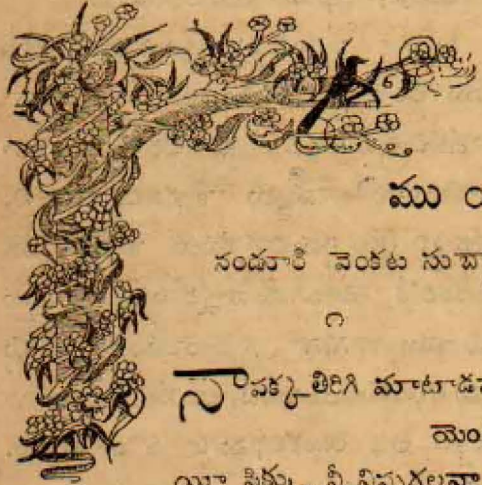 ము
నండూరి వెంకట సుబా
౧
నాపక్కతిరిగి మాటాడ
యెం
యీ సిక్కు